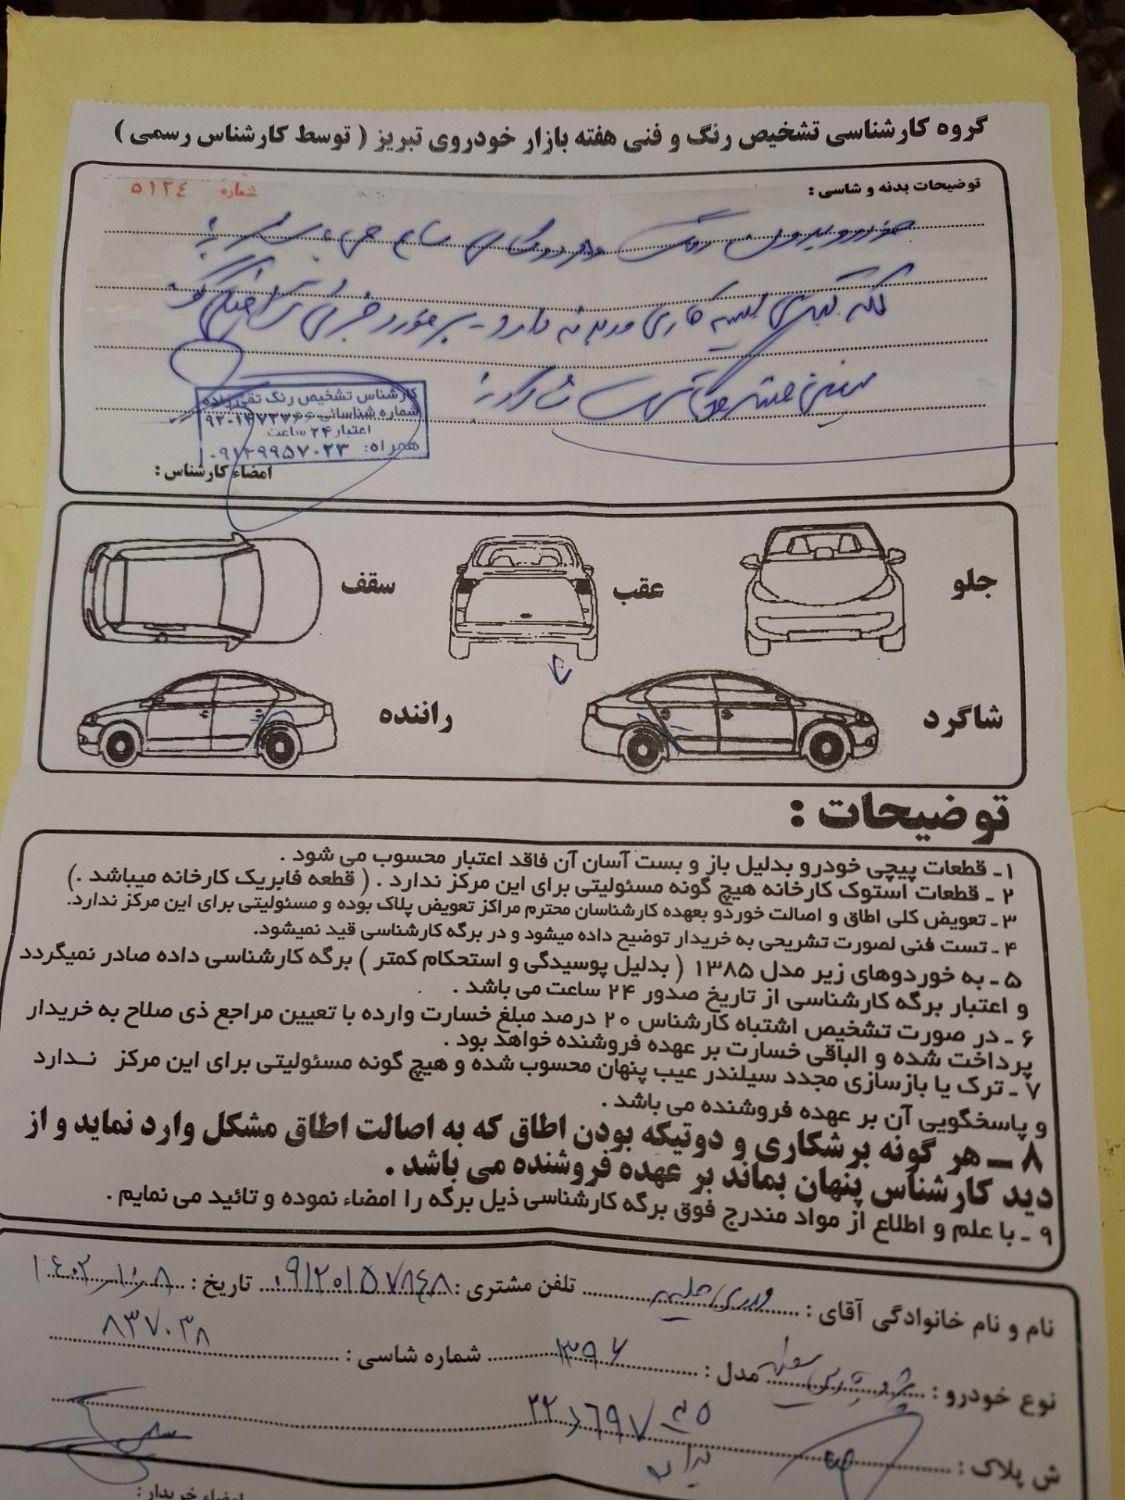 گروه کارشناسی تشخیص رنگ و فنی هفته بازار خودروی تبریز ( توسط کارشناس رسمی )
توضیحات بدنه و شاسی :
شماره ۵۱۲٤
خودرو بدون رنگ
لکه گیری لیسه کاری
کارشناس تشخیص رنگ تقی زاده
شماره شناسائی
اعتبار ۲۴ ساعت
همراه: ۰۹۱۴۹۹۵۷۰۲۳
امضاء کارشناس :
جلو
عقب
سقف
شاگرد
راننده
توضیحات :
۱ـ قطعات پیچی خودرو بدلیل باز و بست آسان آن فاقد اعتبار محسوب می شود .
۲ ـ قطعات استوک کارخانه هیچ گونه مسئولیتی برای این مرکز ندارد . ( قطعه فابریک کارخانه میباشد .)
۳ ـ تعویض کلی اطاق و اصالت خوردو بعهده کارشناسان محترم مراکز تعویض پلاک بوده و مسئولیتی برای این مرکز ندارد.
۴ ـ تست فنی لصورت تشریحی به خریدار توضیح داده میشود و در برگه کارشناسی قید نمیشود.
۵ ـ به خوردوهای زیر مدل ۱۳۸۵ ( بدلیل پوسیدگی و استحکام کمتر ) برگه کارشناسی داده صادر نمیگردد
و اعتبار برگه کارشناسی از تاریخ صدور ۲۴ ساعت می باشد .
۶ ـ در صورت تشخیص اشتباه کارشناس ۲۰ درصد مبلغ خسارت وارده با تعیین مراجع ذی صلاح به خریدار
پرداخت شده و الباقی خسارت بر عهده فروشنده خواهد بود .
۷ ـ ترک یا بازسازی مجدد سیلندر عیب پنهان محسوب شده و هیچ گونه مسئولیتی برای این مرکز نـدارد
و پاسخگویی آن بر عهده فروشنده می باشد .
۸ ـ هر گونه برشکاری و دوتیکه بودن اطاق که به اصالت اطاق مشکل وارد نماید و از
دید کارشناس پنهان بماند بر عهده فروشنده می باشد .
۹ ـ با علم و اطلاع از مواد مندرج فوق برگه کارشناسی ذیل برگه را امضاء نموده و تائید می نمایم .
نام و نام خانوادگی آقای : تلفن مشتری : ۰۹۱۲۰۱۵۷۸۴۸ تاریخ : ۱۴۰۲/۱۰/۸
نوع خودرو : پژو پارس مدل : ۱۳۹۶ شماره شاسی : ۸۳۷۰۳۸
ش پلاک :
ایران
امضاء خریدار :